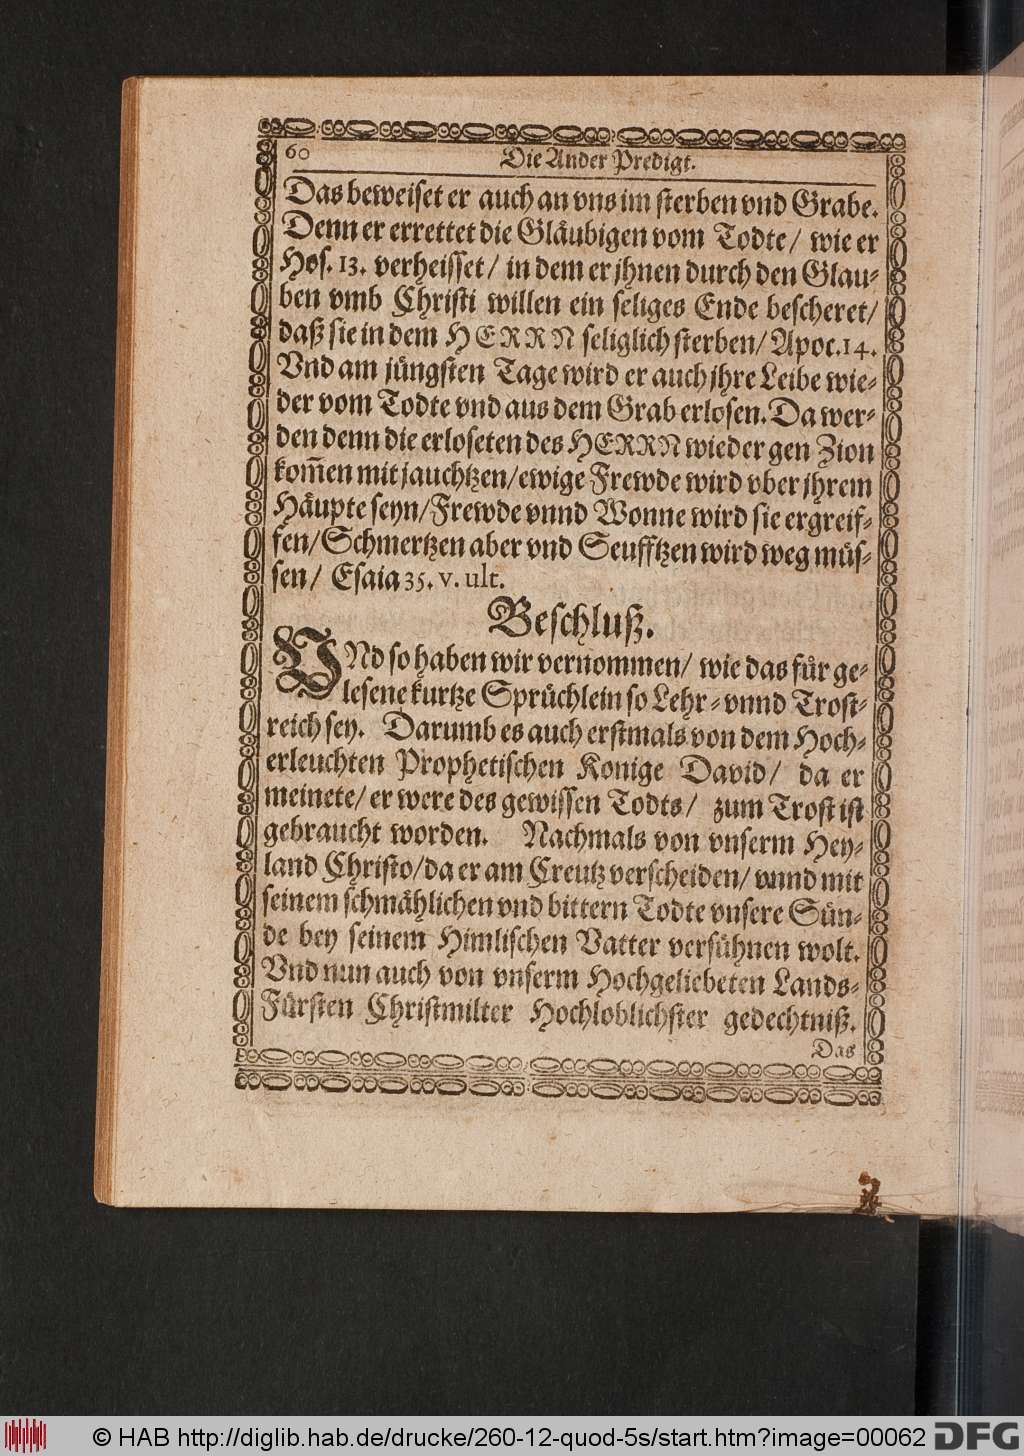 60
Die Ander Predigt.
Das beweiset er auch an vns im sterben vnd Grabe.
Denn er errettet die Gläubigen vom Todte/ wie er
Hos. 13. verheisset/ in dem er jhnen durch den Glau-
ben vmb Christi willen ein seliges Ende bescheret/
daß sie in dem HERRN seliglich sterben/ Apoc. 14.
Vnd am jüngsten Tage wird er auch jhre Leibe wie-
der vom Todte vnd aus dem Grab erlosen. Da wer-
den denn die erloseten des HERRN wieder gen Zion
kom̃en mit jauchtzen/ ewige Frewde wird vber jhrem
Häupte seyn/ Frewde vnnd Wonne wird sie ergreif-
fen/ Schmertzen aber vnd Seufftzen wird weg müs-
sen/ Esaia 35. v. ult.
Beschluß.
VNd so haben wir vernommen/ wie das für ge-
lesene kurtze Sprüchlein so Lehr- vnnd Trost-
reich sey. Darumb es auch erstmals von dem Hoch-
erleuchten Prophetischen Konige David/ da er
meinete/ er were des gewissen Todts/ zum Trost ist
gebraucht worden. Nachmals von vnserm Hey-
land Christo/ da er am Creutz verscheiden/ vnnd mit
seinem schmählichen vnd bittern Todte vnsere Sün-
de bey seinem Himlischen Vatter versühnen wolt.
Vnd nun auch von vnserm Hochgeliebeten Lands-
Fürsten Christmilter Hochloblichster gedechtniß.
Das
© HAB http://diglib.hab.de/drucke/260-12-quod-5s/start.htm?image=00062
DFG